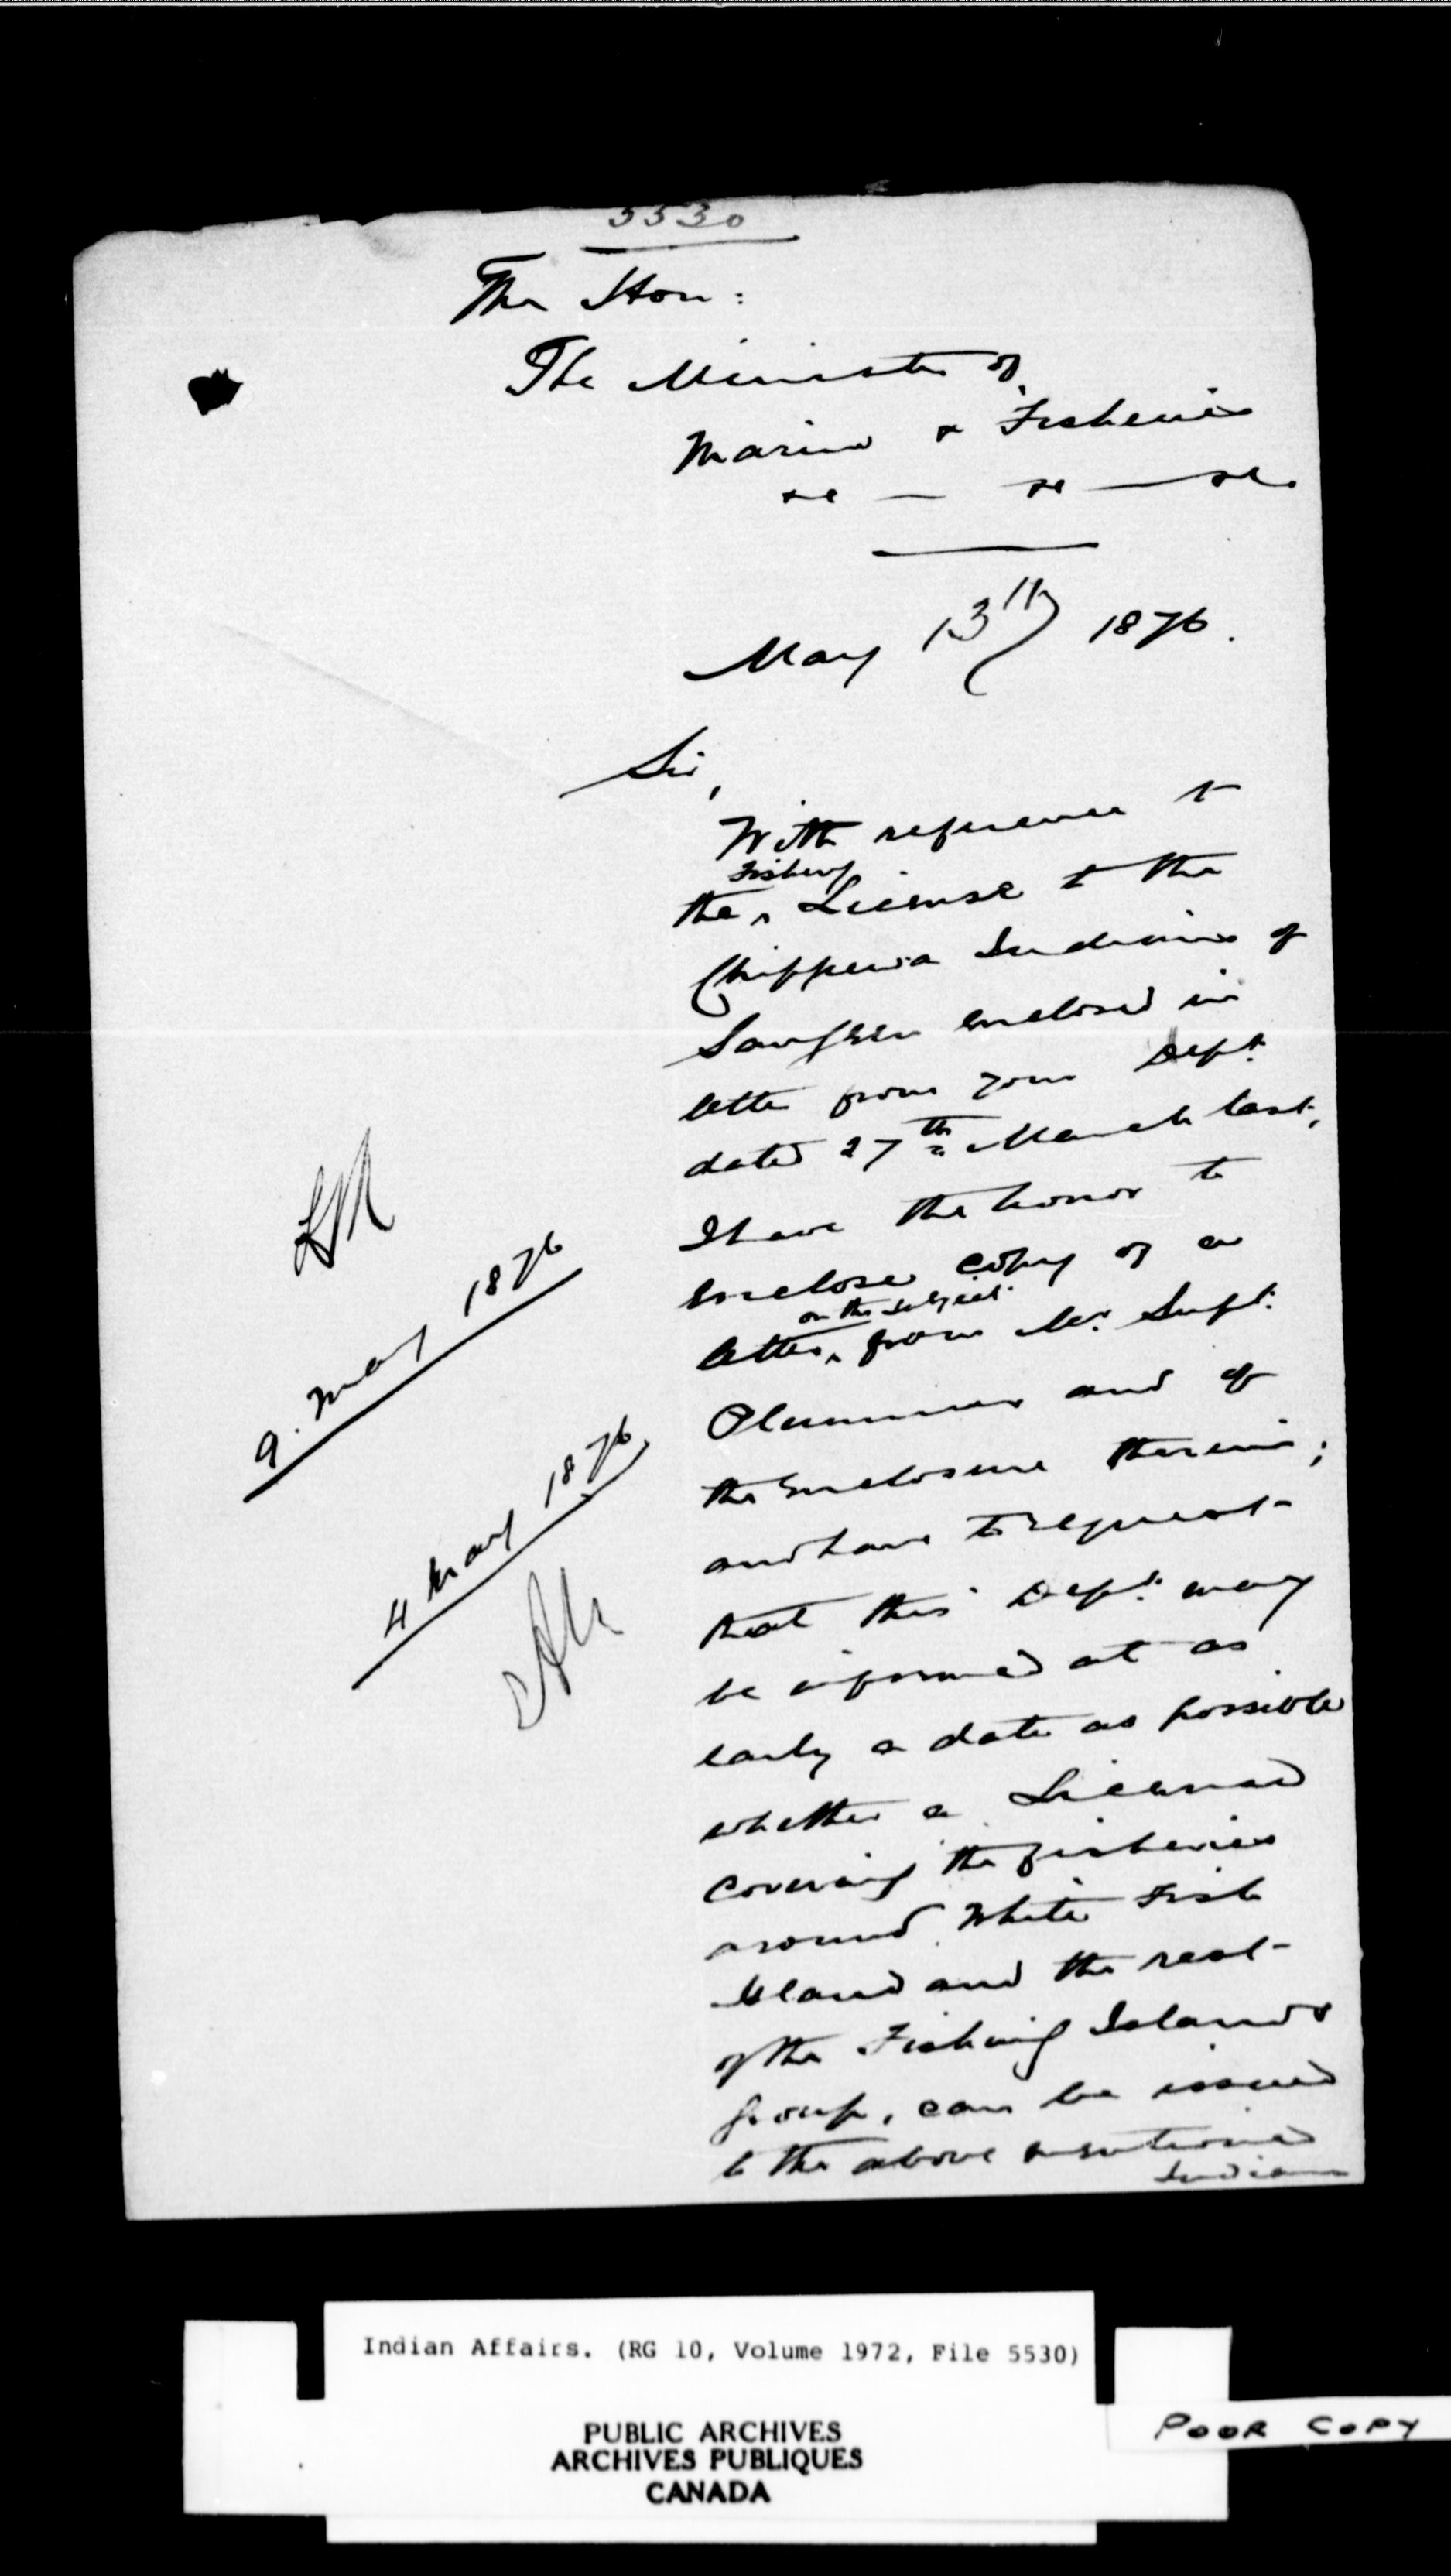 5530
The Hon:
The Minister of
Marine & Fisheries
&c — &c — &c.
May 13th 1876.
Sir,
With reference to
Fishery
the ‸ License to the
Chippewa Indians of
Saugeen enclosed in
letter from your Dept.
dated 27th March last,
I have the honor to
enclose copy of a
on the subject
letter ‸ from Mr. Supt.
Plummer and of
the enclosure therein;
and have to request
that this Dept. may
be informed at as
early a date as possible
whether a License
covering the fisheries
around White Fish
Island and the rest
of the Fishing Islands
group, can be issued
to the above mentioned
Indians
9. May 1876
4 May 1876
Indian Affairs. (RG 10, Volume 1972, File 5530)
PUBLIC ARCHIVES
ARCHIVES PUBLIQUES
CANADA
POOR COPY